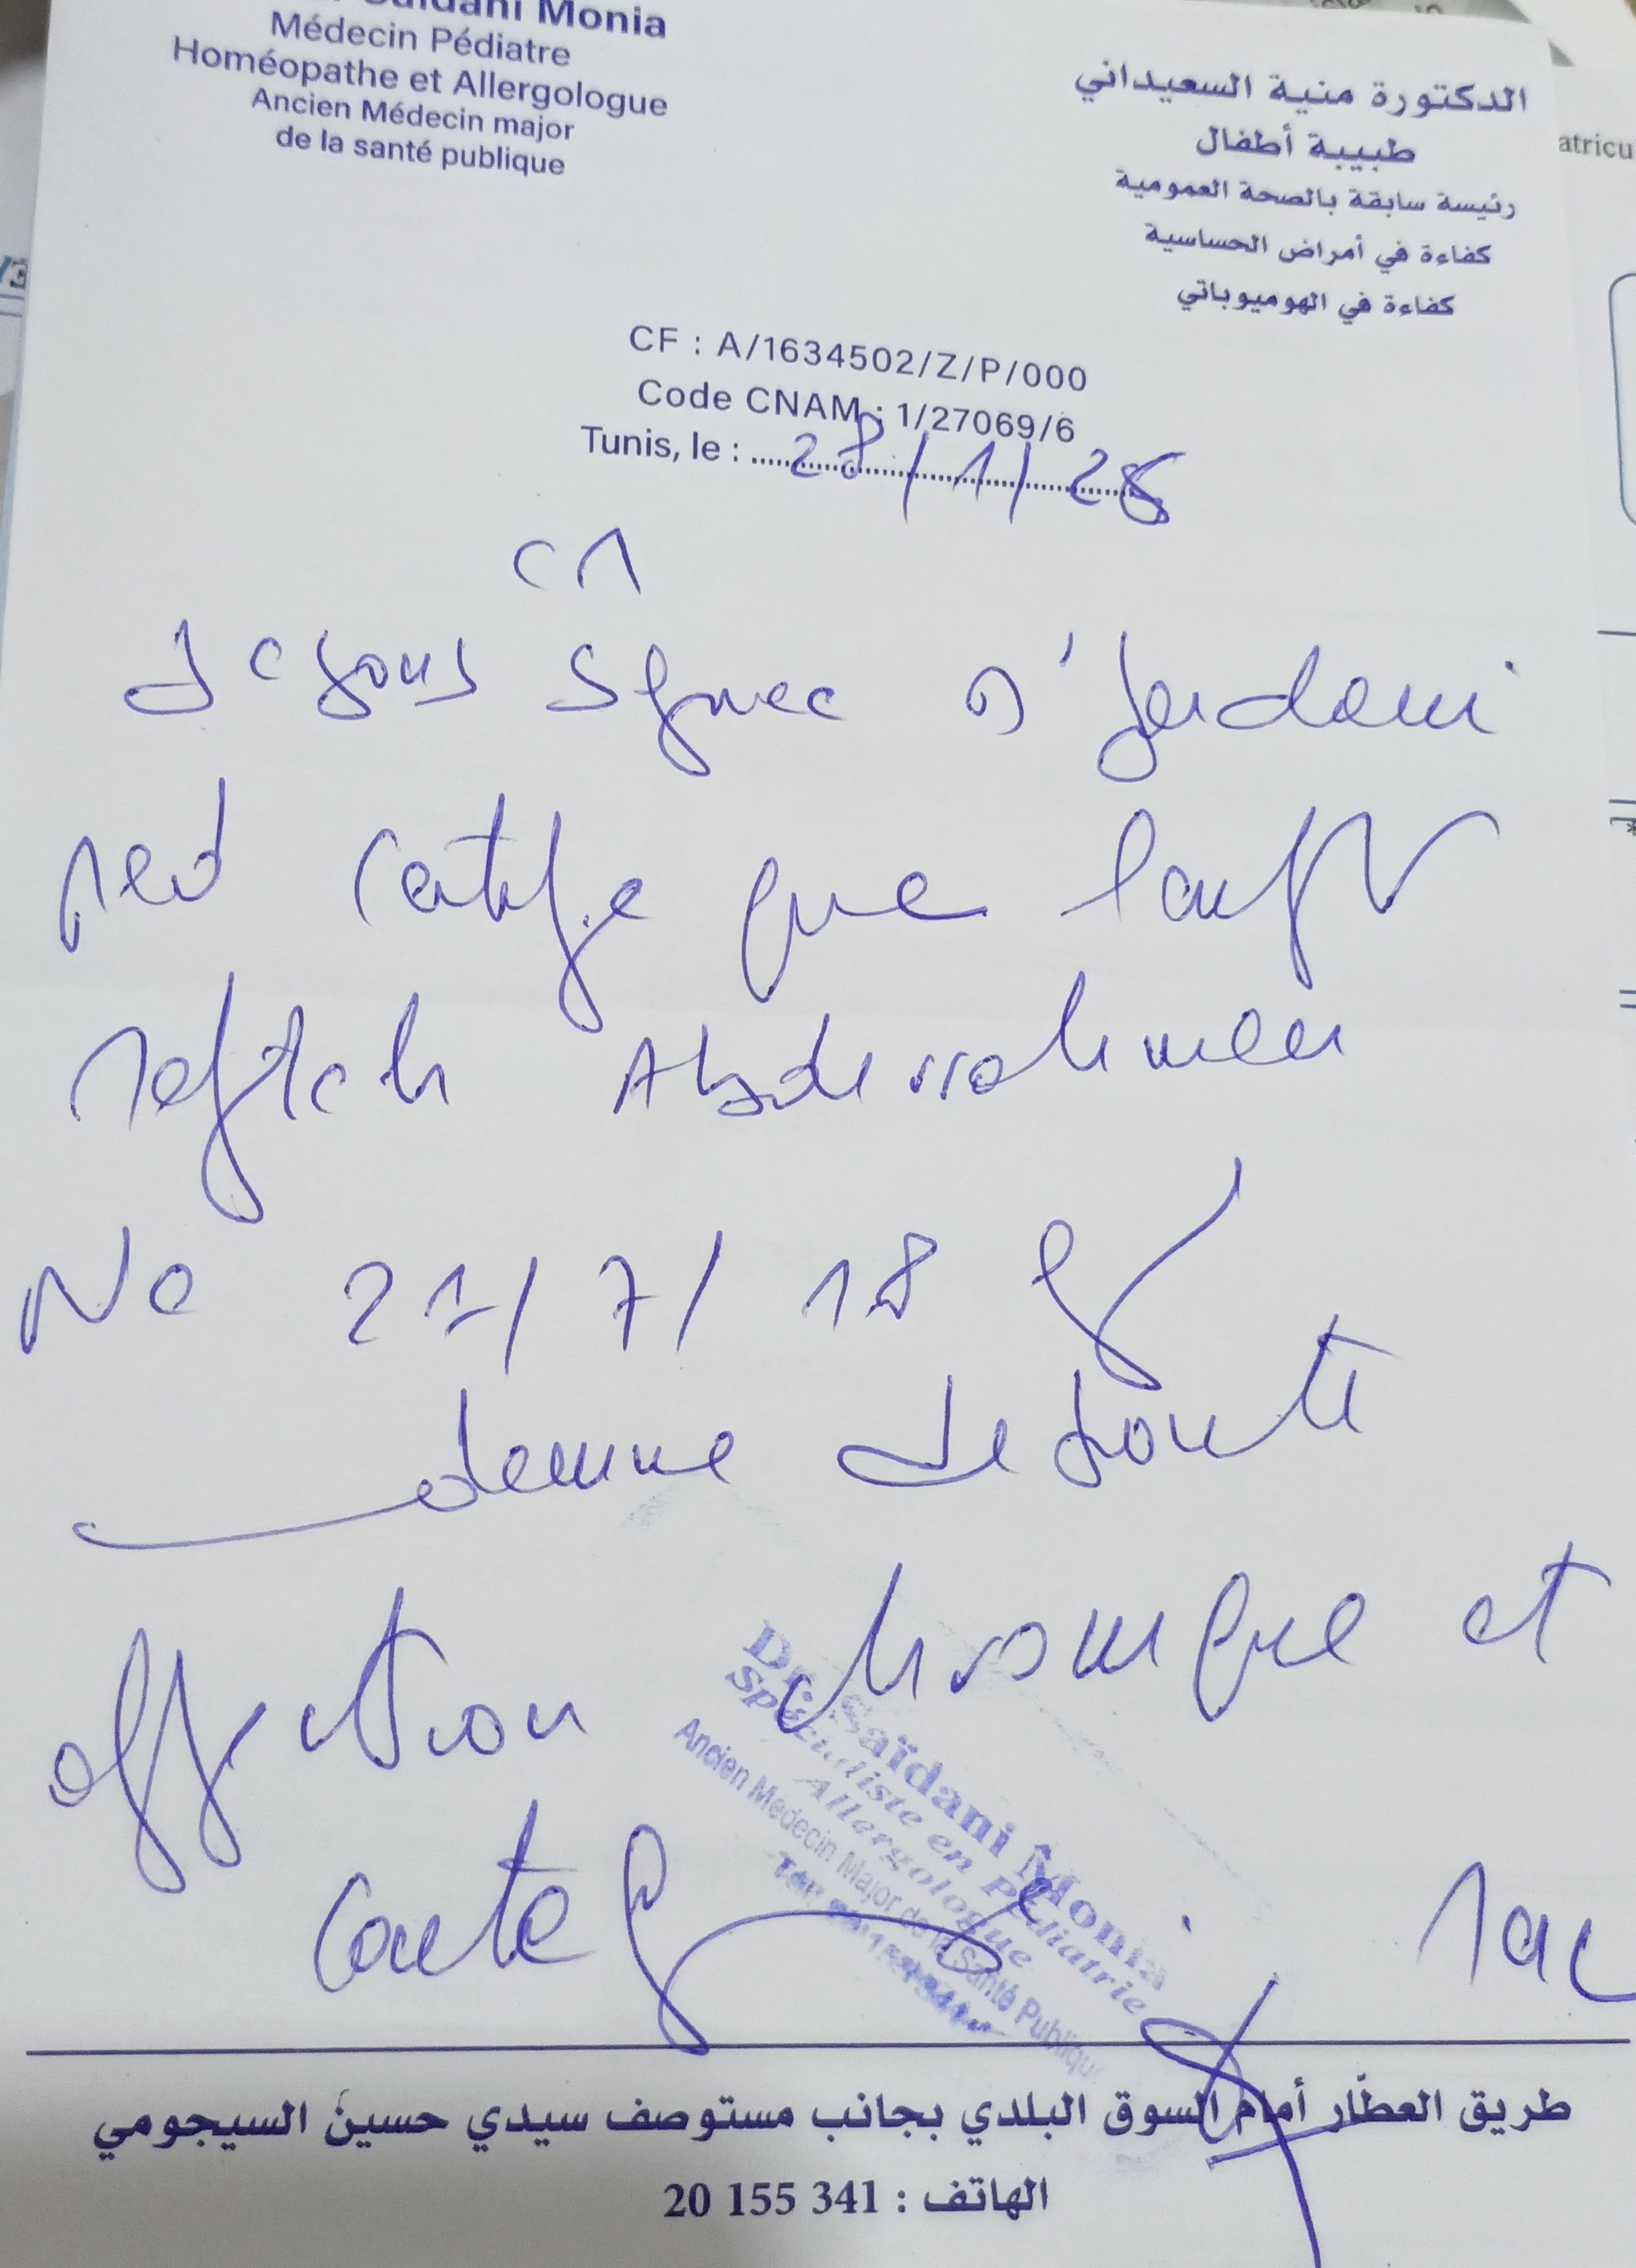 Saidani Monia
Médecin Pédiatre
Homéopathe et Allergologue
Ancien Médecin major
de la santé publique
الدكتورة منية السعيداني
طبيبة أطفال
رئيسة سابقة بالصحة العمومية
كفاءة في أمراض الحساسية
كفاءة في الهوميوباتي
atricu
CF : A/1634502/Z/P/000
Code CNAM : 1/27069/6
Tunis, le : 28/1/26
CM
Je sous signee Dr Saidani
ped certifie que l'enft
Abderrahmen
Ne 21/7/18 est
indemne de toute
affection chronique et
contagieuse.
Dr. Saïdani Monia
Spécialiste en Pédiatrie
Allergologue
Ancien Medecin Major de la Santé Publique
طريق العطّار أمام السوق البلدي بجانب مستوصف سيدي حسين السيجومي
الهاتف : 341 155 20